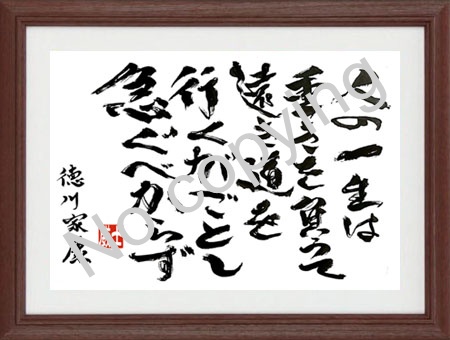 人の一生は
重荷を負うて
遠き道を
行くがごとし
急ぐべからず
徳川家康
No copying